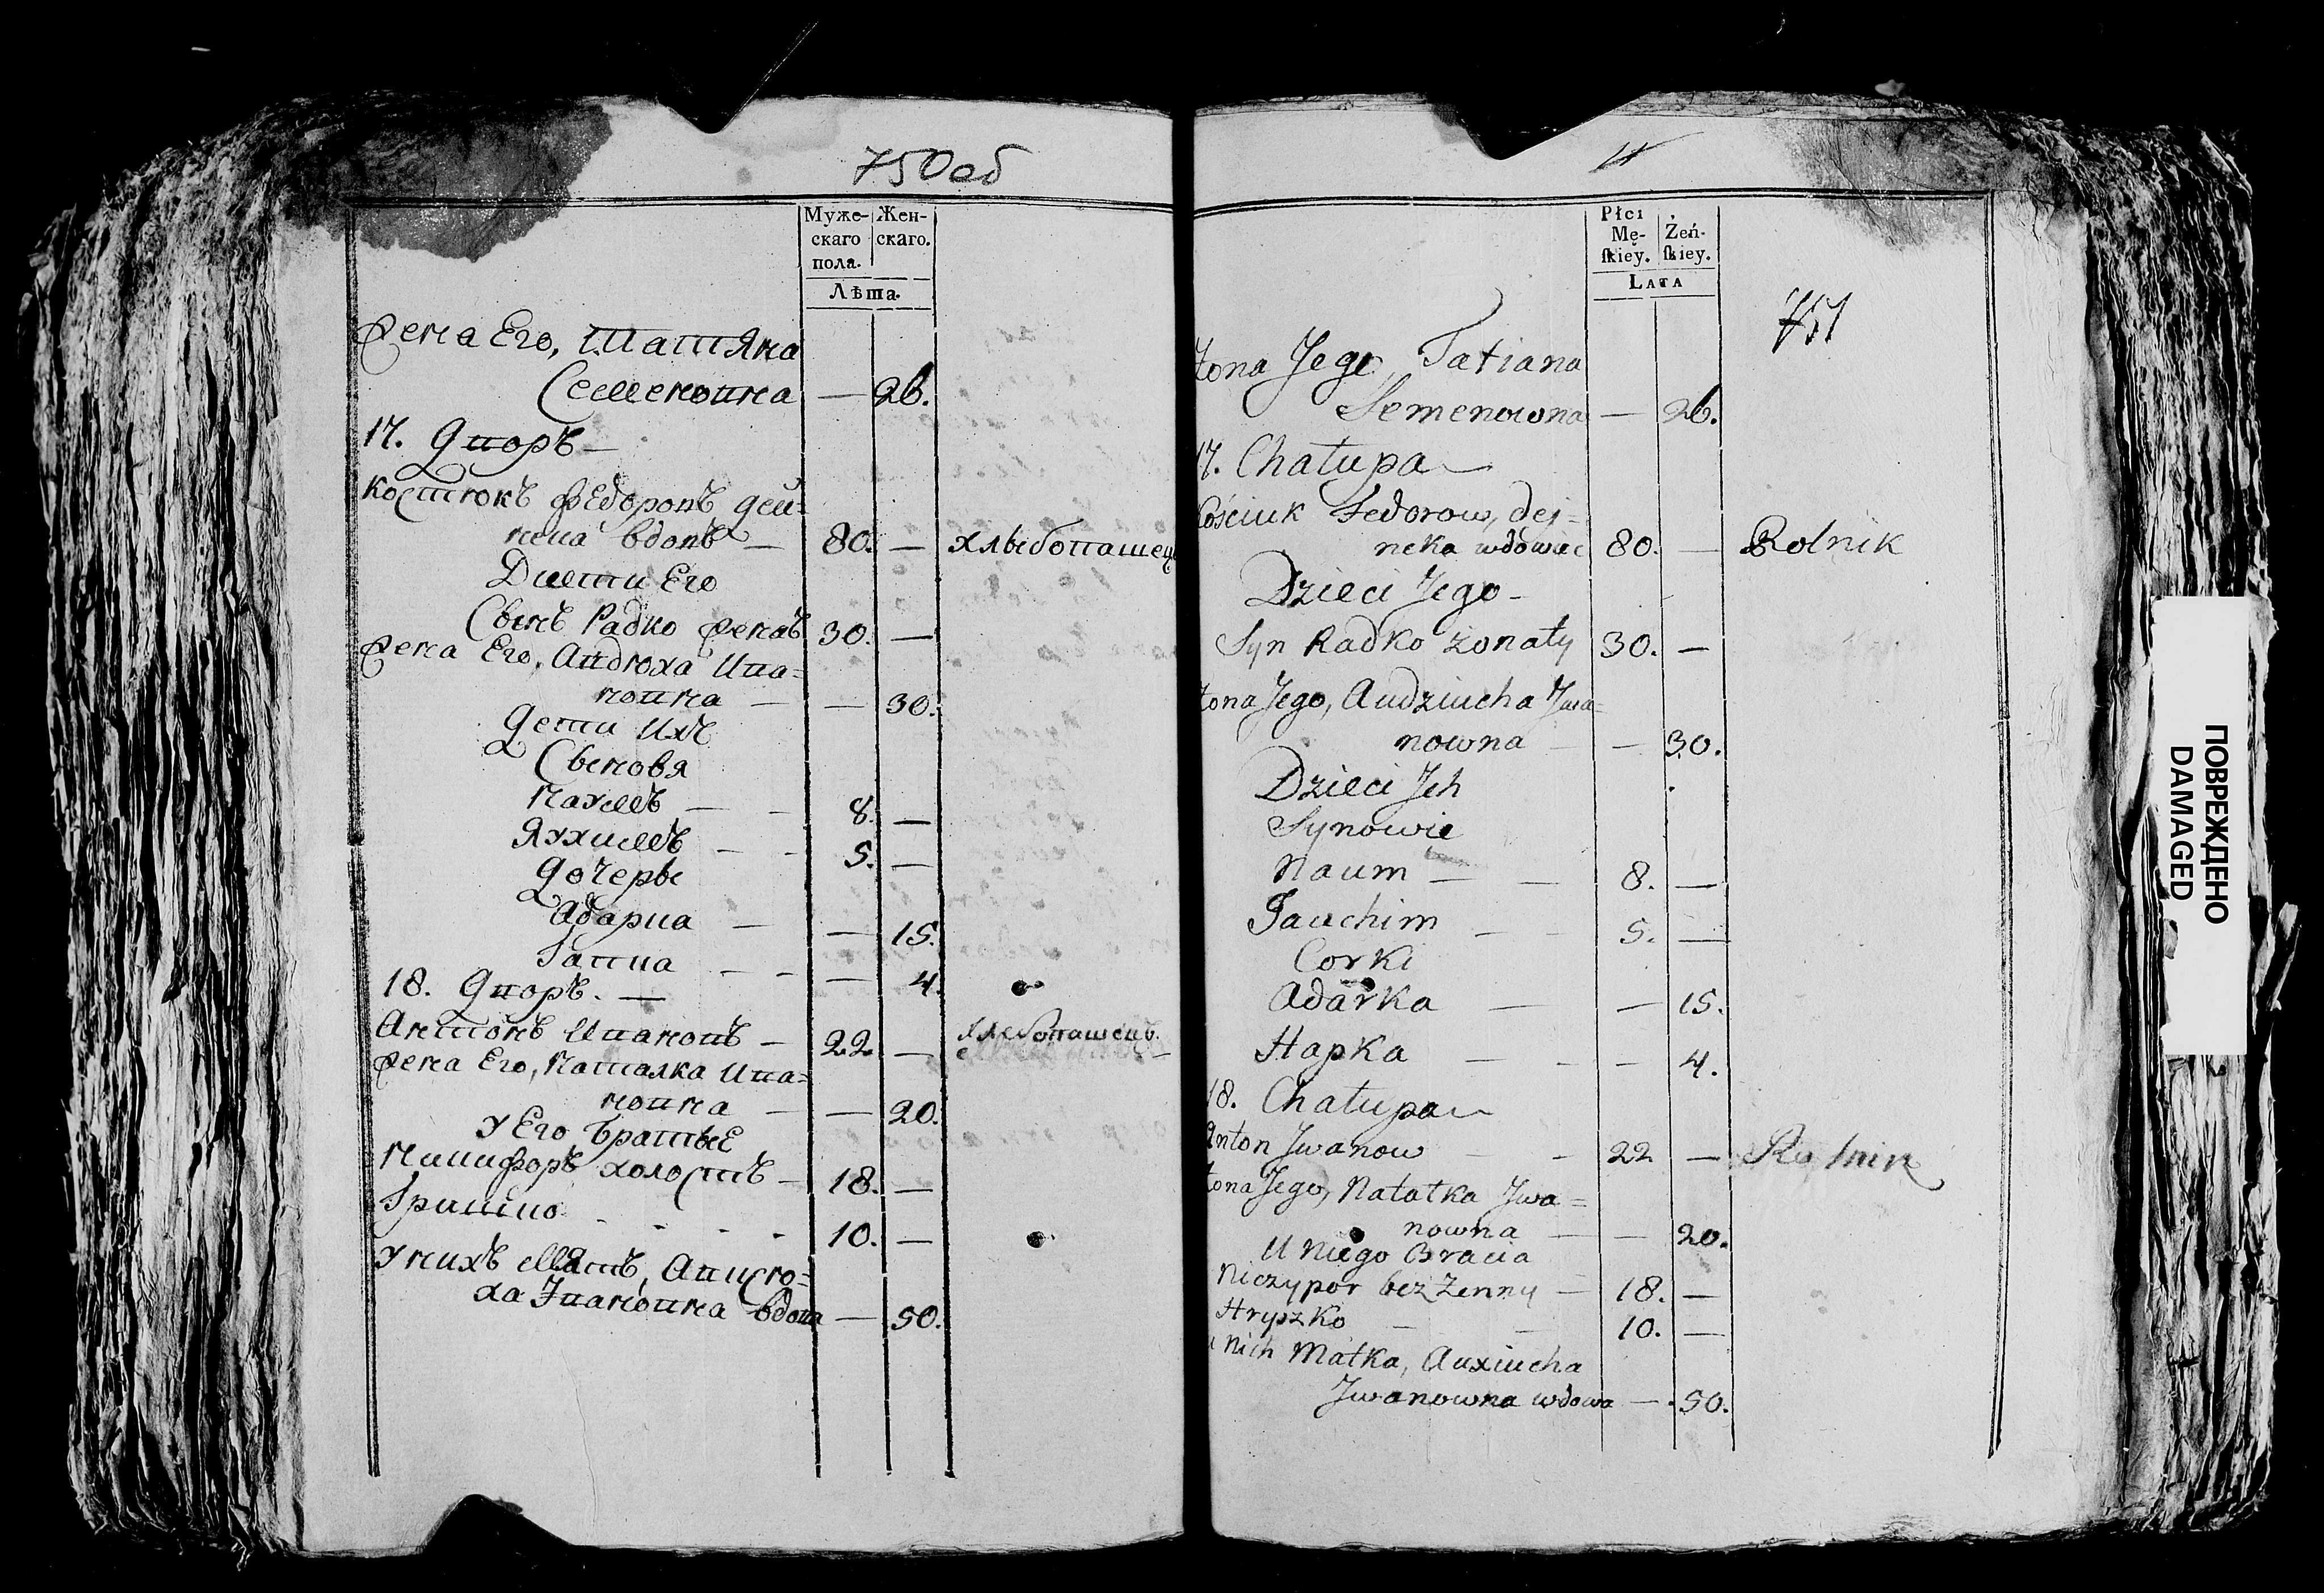 750об
Муже-
скаго
пола.
Жен-
скаго.
Лѣта.
Жена Его, Татяна
Семеновна — 26.
17. Дворъ —
Костюкъ Федоровъ дей=
нека вдовъ — 80. — хлыбопашец
Диети Его
Сынъ Радко женаъ 30. —
Жена Его, Авдюха Ива=
новна — — 30.
Дети Ихъ
Сыновя
Наумъ — - 8. —
Яухимъ — - 5. —
Дочеры
Адарка — — 15.
Гапка — - — 4.
18. Дворъ. —
Антонъ Ивановъ — 22 — хлебопашецъ.
Жена Его, Наталка Ива=
новна — — 20.
У Его братые
Никифоръ холостъ — 18. —
Гришко - - - - 10. —
У нихъ Мять, Авксю=
ха Ивановна вдова — 50.
Płci
Mę-
ſkiey.
Żeń-
ſkiey.
Lata
751
Żona Jego, Tatiana
Semenowna — 26.
17. Chałupa —
Kościuk Fedorow, dej=
neka wdowiec 80. — Rolnik
Dzieci Jego -
Syn Radko żonaty 30. —
Żona Jego, Audziucha Jwa=
nowna — — 30.
Dzieci Jch
Synowie
Naum — — 8. —
Jauchim — - 5. —
Corki
Adarka — — 15.
Hapka — - — 4.
18. Chałupa —
Anton Jwanow - - 22 — Rolnik
Żona Jego, Natałka Jwa=
nowna — — 20.
U Niego Bracia
Niczypor bez Żenny — 18. —
Hryszko — — 10. —
u Nich Matka, Auxiucha
Jwanowna wdowa — 50.
ПОВРЕЖДЕНО
DAMAGED